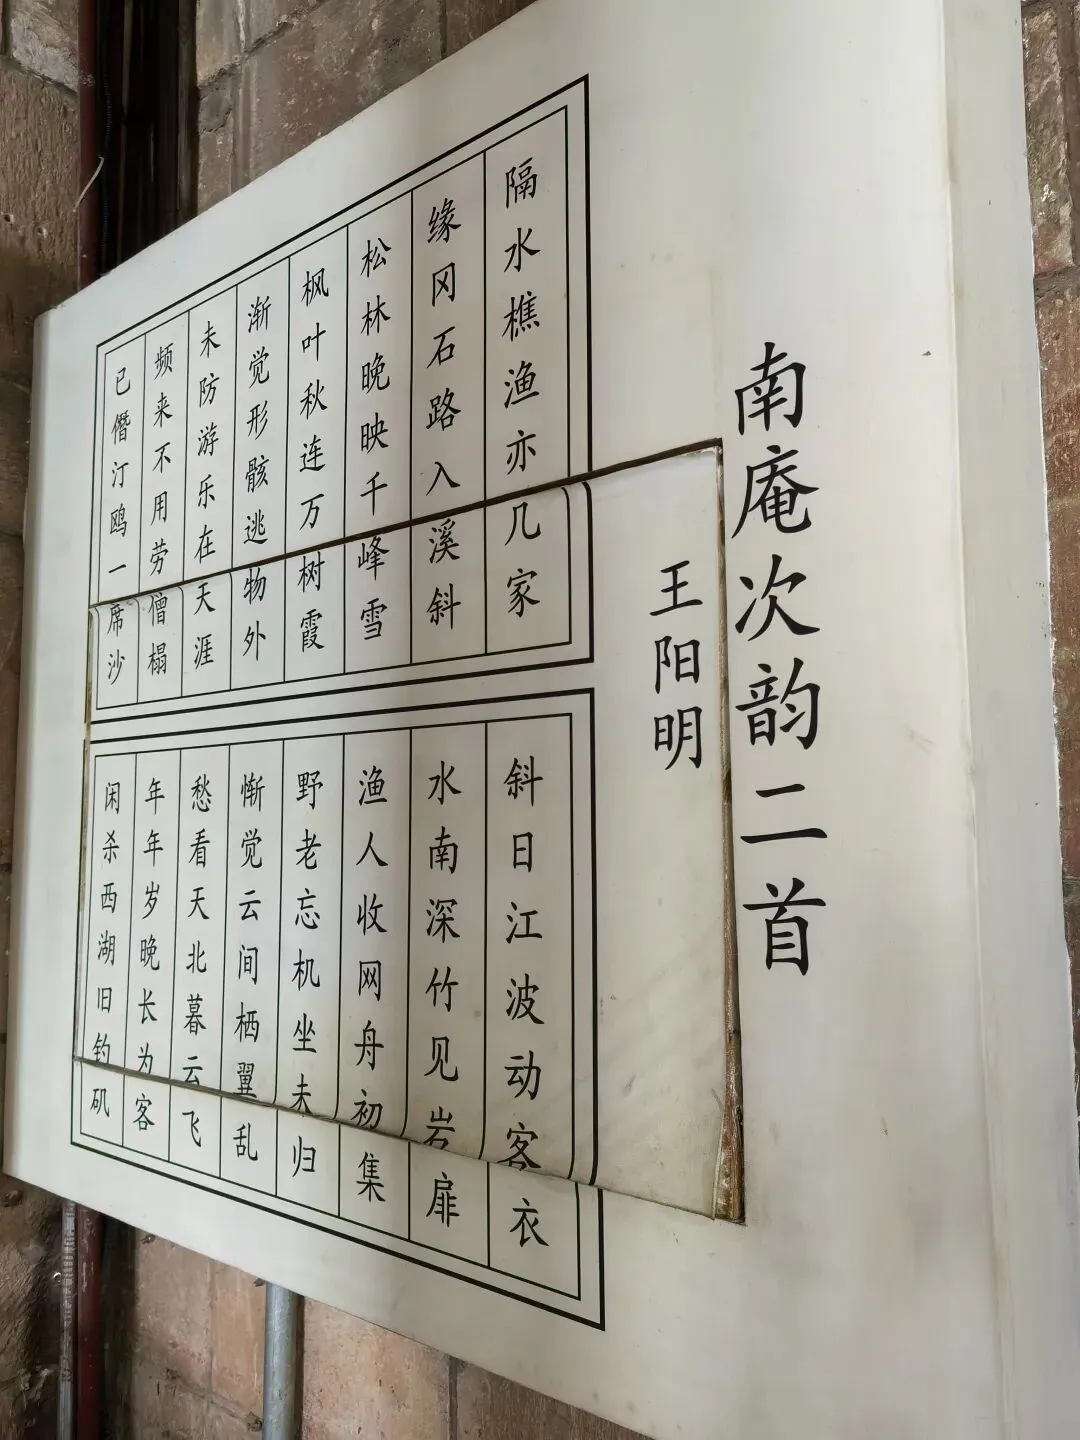 南庵次韵二首
王阳明
隔水樵渔亦几家
缘冈石路入溪斜
松林晚映千峰雪
枫叶秋连万树霞
渐觉形骸逃物外
未防游乐在天涯
频来不用劳僧榻
已僭汀鸥一席沙
斜日江波动客衣
水南深竹见岩扉
渔人收网舟初集
野老忘机坐未归
惭觉云间栖翼乱
愁看天北暮云飞
年年岁晚长为客
闲杀西湖旧钓矶